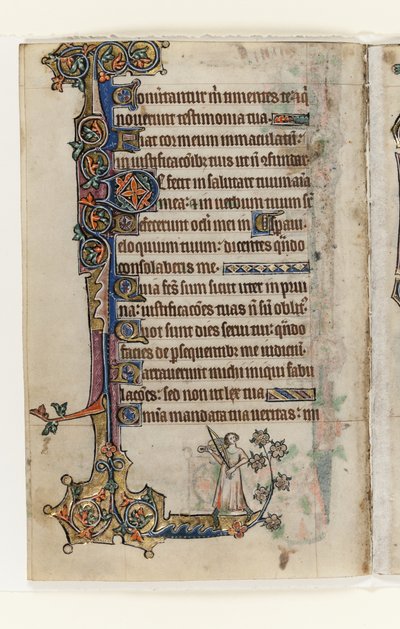 Conu̅tantur m̅ timentes te: ⁊ q̅
nouerunt testimonia tua.
Fiat cor meum inmaculatu̅:
in iustificac̅o̅ib; tuis ut n̅ ꝯfundar
Defecit in salutare tuum a̅i̅a̅
mea: ⁊ in uerbum tuum sp̅
Defecerunt oc̅li mei in
eloquium tuum: dicentes q̅n̅do
consolaberis me.
Quia fc̅s sum sicut uter in prui
na: iustificac̅o̅es tuas n̅ su̅ oblit̅
Quot sunt dies serui tui: q̅n̅do
facies de ꝑsequentib; me iudiciu̅
Narrauerunt michi iniqui fabu
lac̅o̅es: sed non ut lex tua
Om̅ia mandata tua ueritas: ini